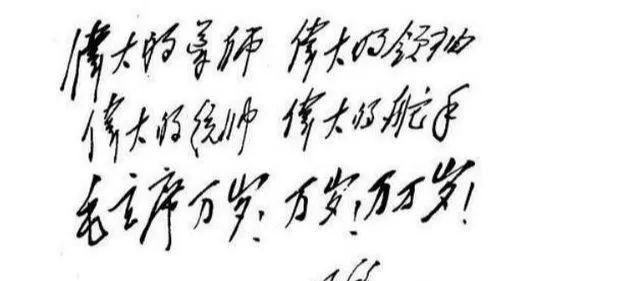 偉大的导师 偉大的领袖
偉大的统帅 偉大的舵手
毛主席万岁!万岁!万万岁!